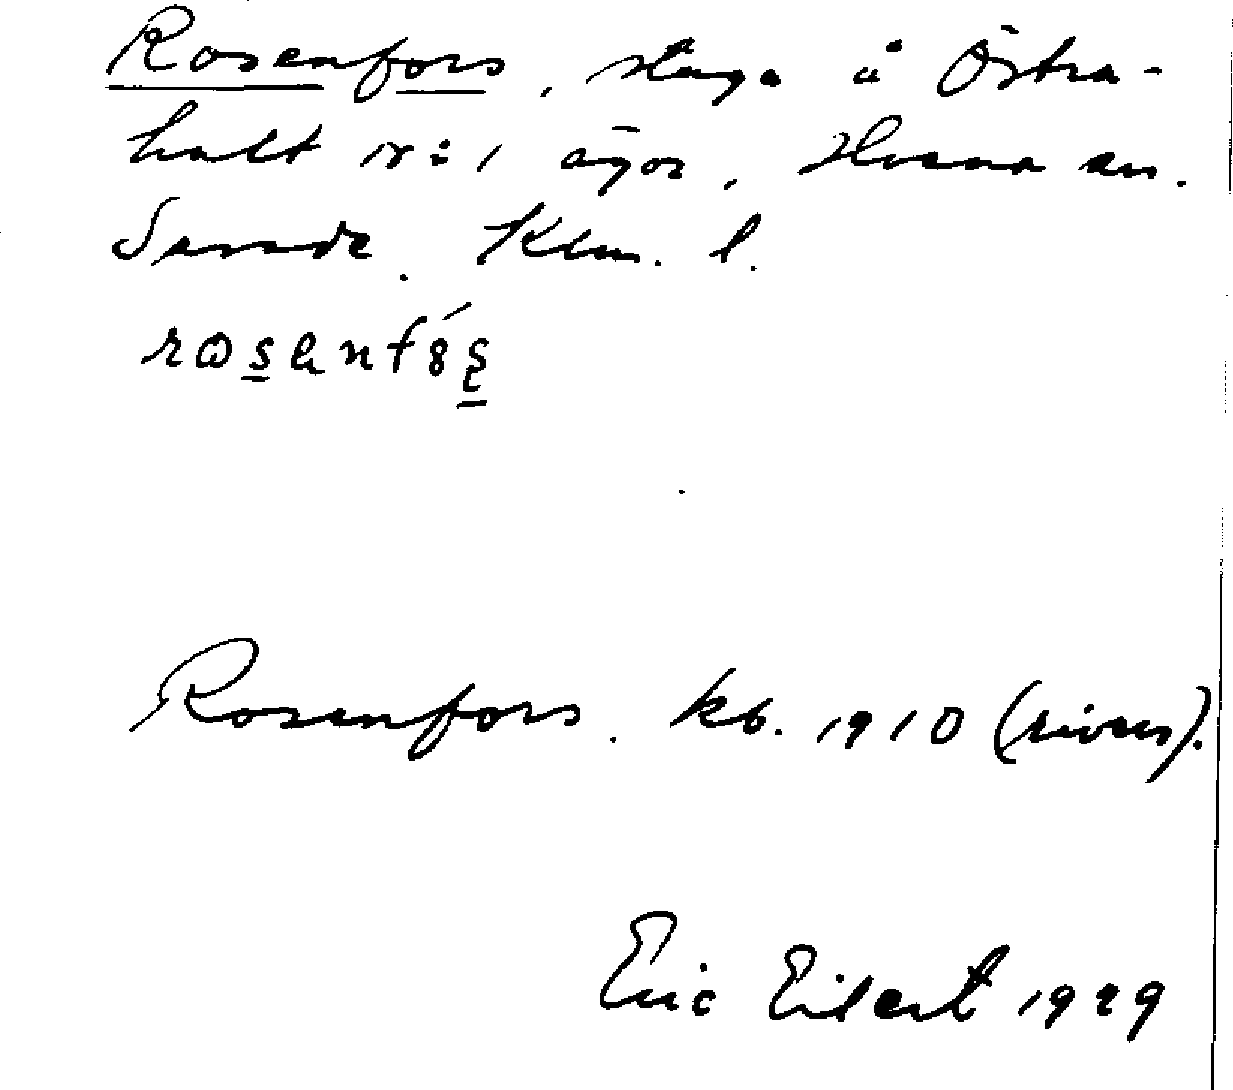 Rosenfors, stuga å Östra-
hult nr: 1 ägor, Hvena sn.
Sevede. Klm. l.
Rosenfors. kb. 1910 (rives).
Eric Eilert 1929